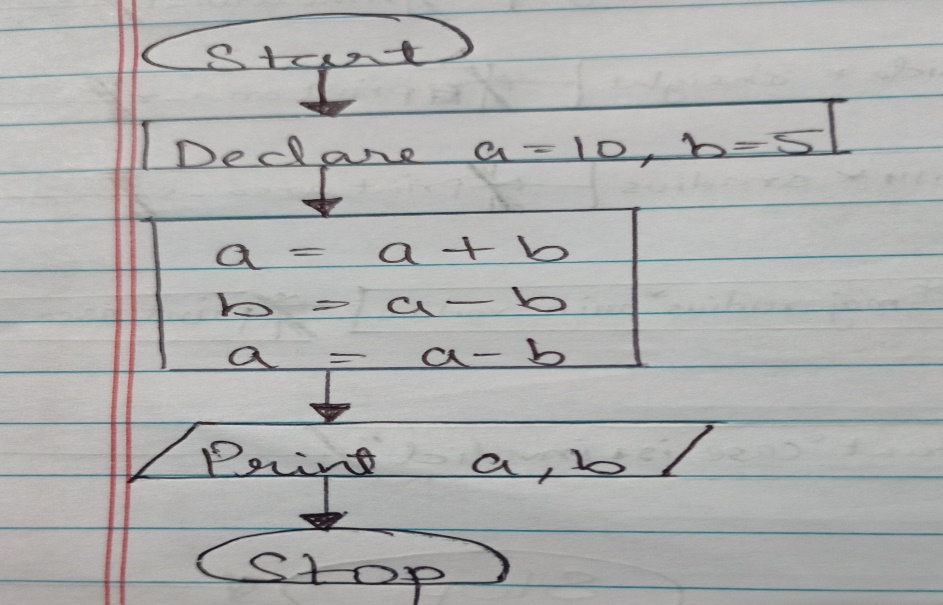 Start
Declare a = 10, b = 5
a = a + b
b = a - b
a = a - b
Print a, b
Stop